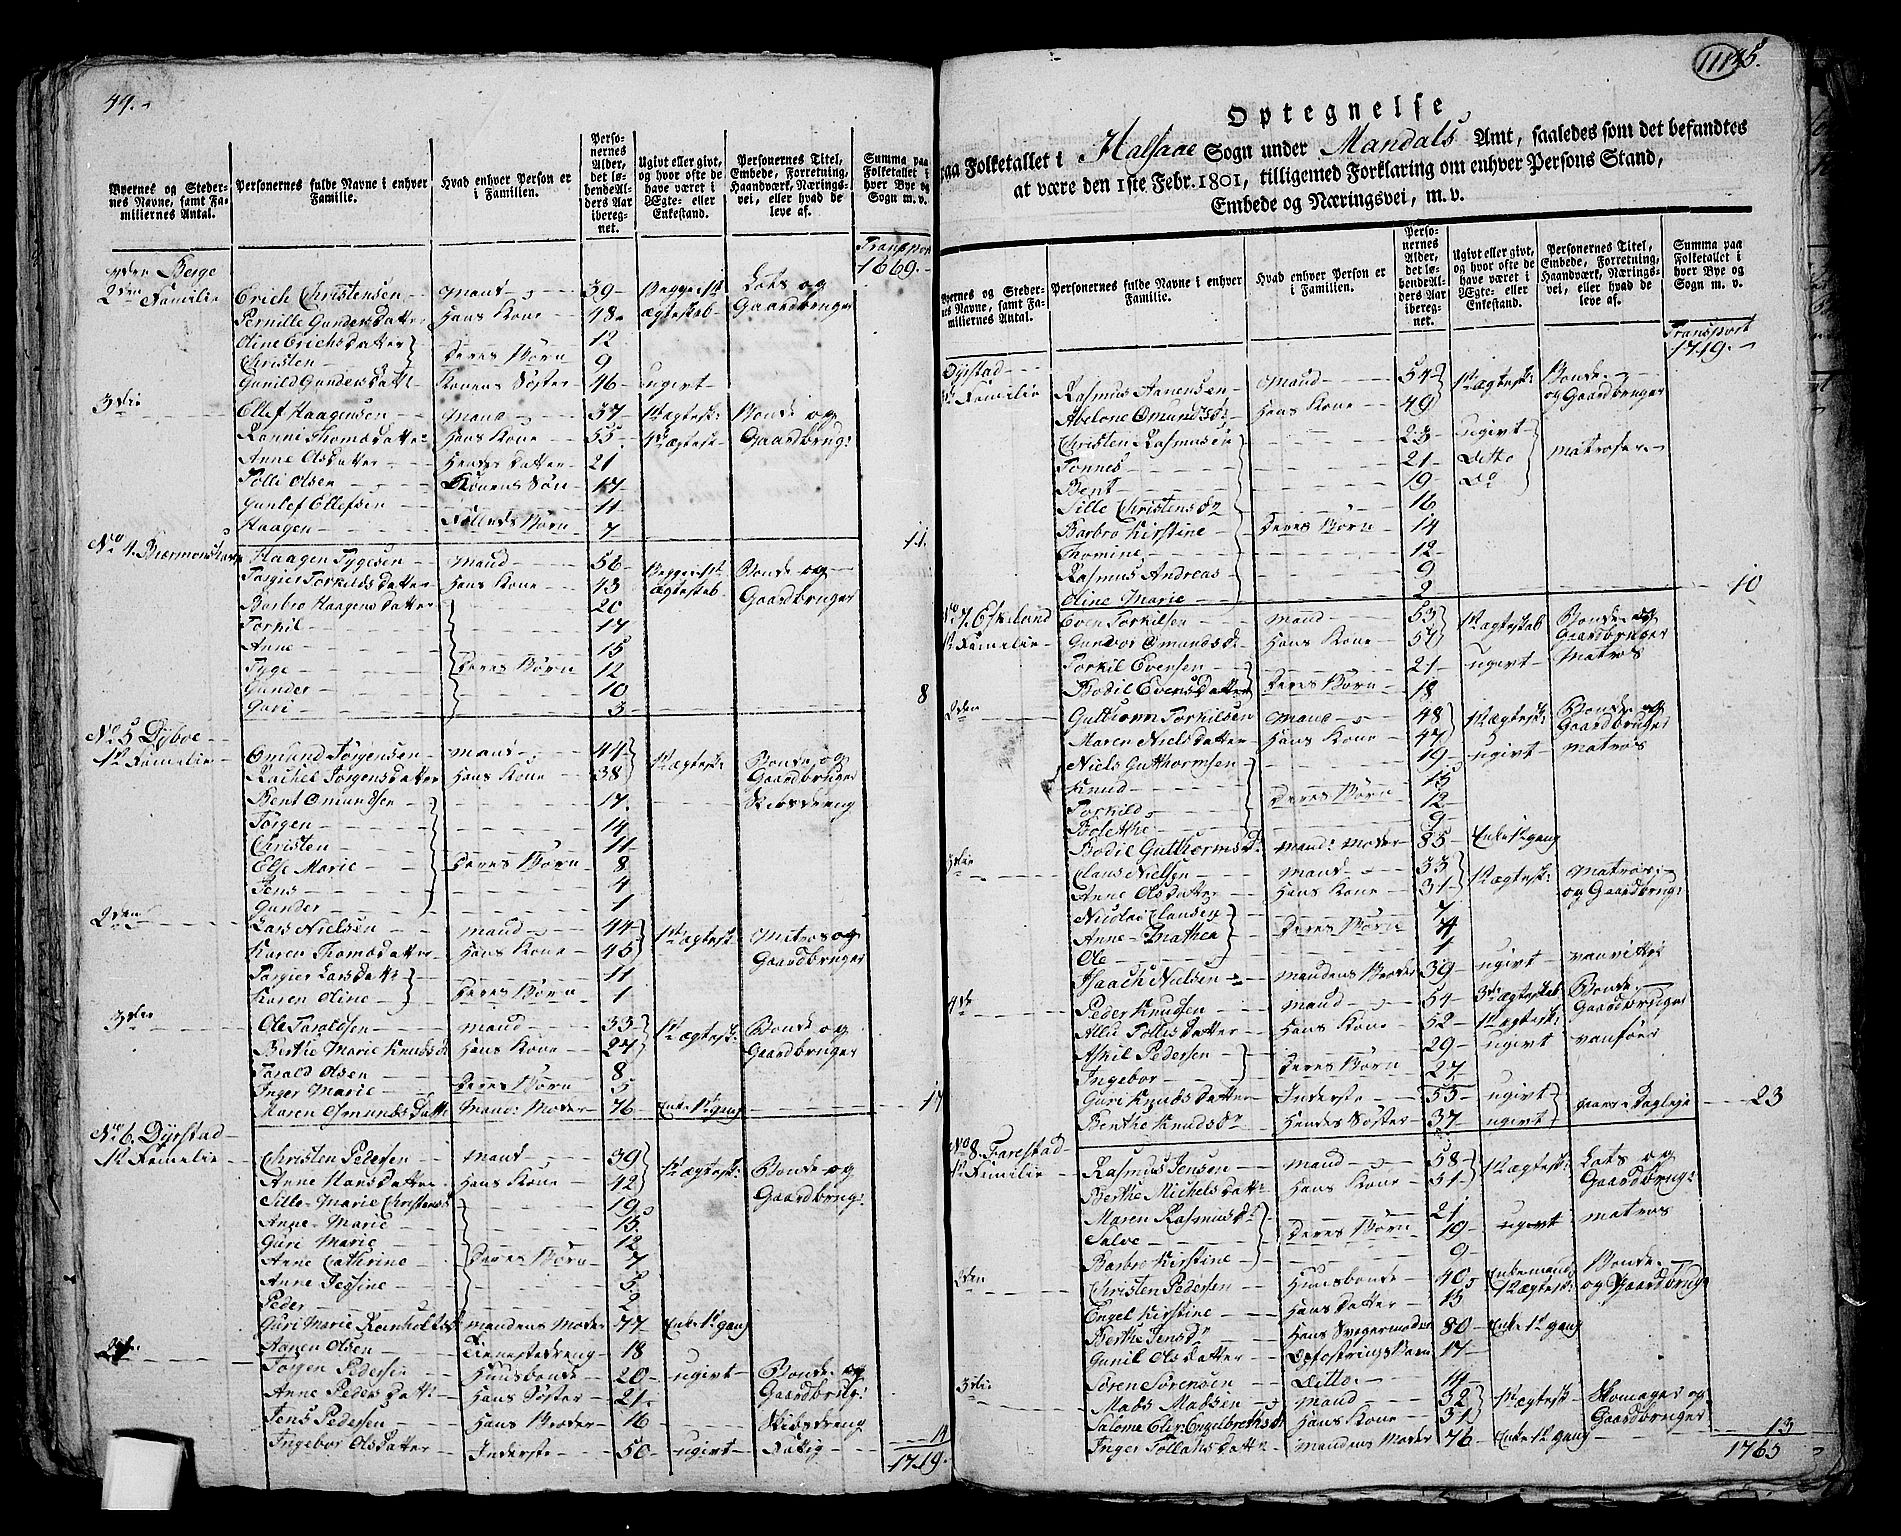 44.
Byernes og Steder-
nes Navne, samt Fa-
miliernes Antal.
Personernes fulde Navne i enhver
Familie.
Hvad enhver Person er
i Familien.
Perso-
nernes
Alder,
det lø-
bende Al-
ders Aar
ibereg-
net.
Ugivt eller givt,
og hvor ofte de
have været i
Ægte- eller
Enkestand.
Personernes Titel,
Embede, Forretning,
Haandværk, Nærings-
vei, eller hvad de
leve af.
Summa paa
Folketallet i
hver Bye og
Sogn m. v.
Transport
1669.
Berge
2den Familie Erich Christensen Mand 39 Begge 1st Lots og
Pernille Gundersdatter Hans Kone 48 Ægteskab Gaardbruger
Oline Erichsdatter 12
Christen Deres Børn 9
Gunild Gundersdatt: Konens Søster 46 ugivt
3die Ellef Haagensen Mand 37 1st Ægtesk: Bonde og
Ranni Thomsdatter Hans Kone 55 Ægtesk Gaardbrug:
Anne Olsdatter Hendes Datter 21
Tolli Olsen Konens Søn 17
Gunlef Ellefsen 11
Haagen Fælleds Børn 7 11
No 4. Haagen Tygesen Mand 56 Begge 1st Bonde og
Torgier Torkildsdatter Hans Kone 43 Ægteskab Gaardbruger
Barbro Haagensdatter 20
Torkil 17
Anne 15
Tyge Deres Børn 12
Gunder 10
Guri 3 8
No 5 Dyboe
1st Familie Omund Jørgensen Mand 44 1st Ægtesk: Bonde og
Rachel Jørgensdatter Hans Kone 38 Gaardbruger
Bent Omundsen 17 Skibsdreng
Jørgen 14
Christen 11
Else Marie Deres Børn 8
Jens 4
Gunder 1
2den Lars Nielsen Mand 44 1st Ægtesk: Matros og
Karen Thomsdatter Hans Kone 45 Gaardbruger
Torgier Larsdatt: 11
Karen Oline Deres Børn 1
3die Ole Taraldsen Mand 33 1st Ægtesk: Bonde og
Berthe Marie Knudsd Hans Kone 27 Gaardbruger
Tarald Olsen 8
Inger Marie Deres Børn 5
Maren Osmundsdatt: Mand: Moder 76 Enke 1st gang 17
No 6. Dyrstad
1st Familie Christen Pedersen Mand 39 1st Ægtesk: Bonde og
Anne Hansdatter Hans Kone 42 Gaardbrug:
Sille Marie Christensd 19
Anne Marie 15
Guri Marie 12
Anne Cathrine Deres Børn 7
Anne Jessine 5
Peder 2
Guri Marie Reinholtsd Mandens Moder 77 Enke 1st gang
Aanen Olsen Tienestedreng 18
2den Jørgen Pedersen Huusbonde 20 ugivt Bonde og
Anne Pedersdatt: Hans Søster 21 Gaardbrug:
Jens Pedersen Hans Broder 16 Skibsdreng
Ingebor Olsdatter Inderste 50 ugivt Fattig 14
1719.
111 45.
Optegnelse
paa Folketallet i Halsaae Sogn under Mandals Amt, saaledes som det befandtes
at være den 1ste Febr. 1801, tilligemed Forklaring om enhver Persons Stand,
Embede og Næringsvei, m. v.
Byernes og Steder-
nes Navne, samt Fa-
miliernes Antal.
Personernes fulde Navne i enhver
Familie.
Hvad enhver Person er
i Familien.
Perso-
nernes
Alder,
det lø-
bende Al-
ders Aar
ibereg-
net.
Ugivt eller givt,
og hvor ofte de
have været i
Ægte- eller
Enkestand.
Personernes Titel,
Embede, Forretning,
Haandværk, Nærings-
vei, eller hvad de
leve af.
Summa paa
Folketallet i
hver Bye og
Sogn m. v.
Transport
1719.
Dyrstad
Familie Rasmus Aanensen Mand 54 1st Ægtesk: Bonde
Abelone Omundsd: Hans Kone 49 og Gaardbruger
Christen Rasmusen 23 ugivt
Tønnes 21 Ditto Matroser
Bent 19 Do
Sille Christensdr 16
Barbro Kirstine Deres Børn 14
Thomine 12
Rasmus Andreas 9
Oline Marie 2 10
No 7. Eskeland Even Torkilsen Mand 53 1st Ægteskab Bonde og
1st Familie Gundor Omundsd: Hans Kone 57 Gaardbruger
Torkil Evensen 21 ugivt Matros
Bodil Evensdatter Deres Børn 18
2den Gutthorm Torkilsen Mand 48 1st Ægtesk: Bonde og
Maren Nielsdatter Hans Kone 47 Gaardbruger
Niels Gutthormsen 19 ugivt Matros
Knud 15
Torkild Deres Børn 12
Bolethe 9
Bodil Gutthormsd: Mand: Moder 85 Enke 1st gang
3die Claus Nielsen Mand 33 1st Ægtesk: Matros
Anne Olsdatter Hans Kone 31 og Gaardbrug:
Nicolai Clausen 7
Anne Deres Børn 4
Ole 1
Isaach Nielsen Mandens Broder 39 ugivt vanvittig
4de Peder Knudsen Mand 54 3die Ægteskab Bonde
Hans Kone 52 1st Ægtesk: Gaardbruger
Askil Pedersen 29 ugivt vanføer
Ingebor Deres Børn 27
Guri Knudsdatter Inderste 55 ugivt
Benthe Knudsdr Hendes Søster 37 ugivt 23
No 8. Farestad
1st Familie Rasmus Jensen Mand 58 1st Ægtesk: Lots og
Berthe Michelsdatt: Hans Kone 51 Gaardbrug:
Maren Rasmusd: 21
Salve Deres Børn 19 ugivt Matros
Barbro Kirstine 9
2den Christen Pedersen Huusbonde 40 Enkemand Bonde
Engel Kirstine Hans Datter 15 1st Ægtesk: og Gaardbrug
Berthe Jensdr Hans Svigermoder 80 Enke 1st gang
Gunil Olsdatter Opfostrings Barn 17
Søren Sørensen Ditto 14
3die Mads Madsen Mand 32 1st Ægtesk Skomager og
Salome Engelbrethsd: Hans Kone 31 Gaardbruger
Inger Tollaksdatt: Mandens Moder 76 Enke 1st gang 13
1765